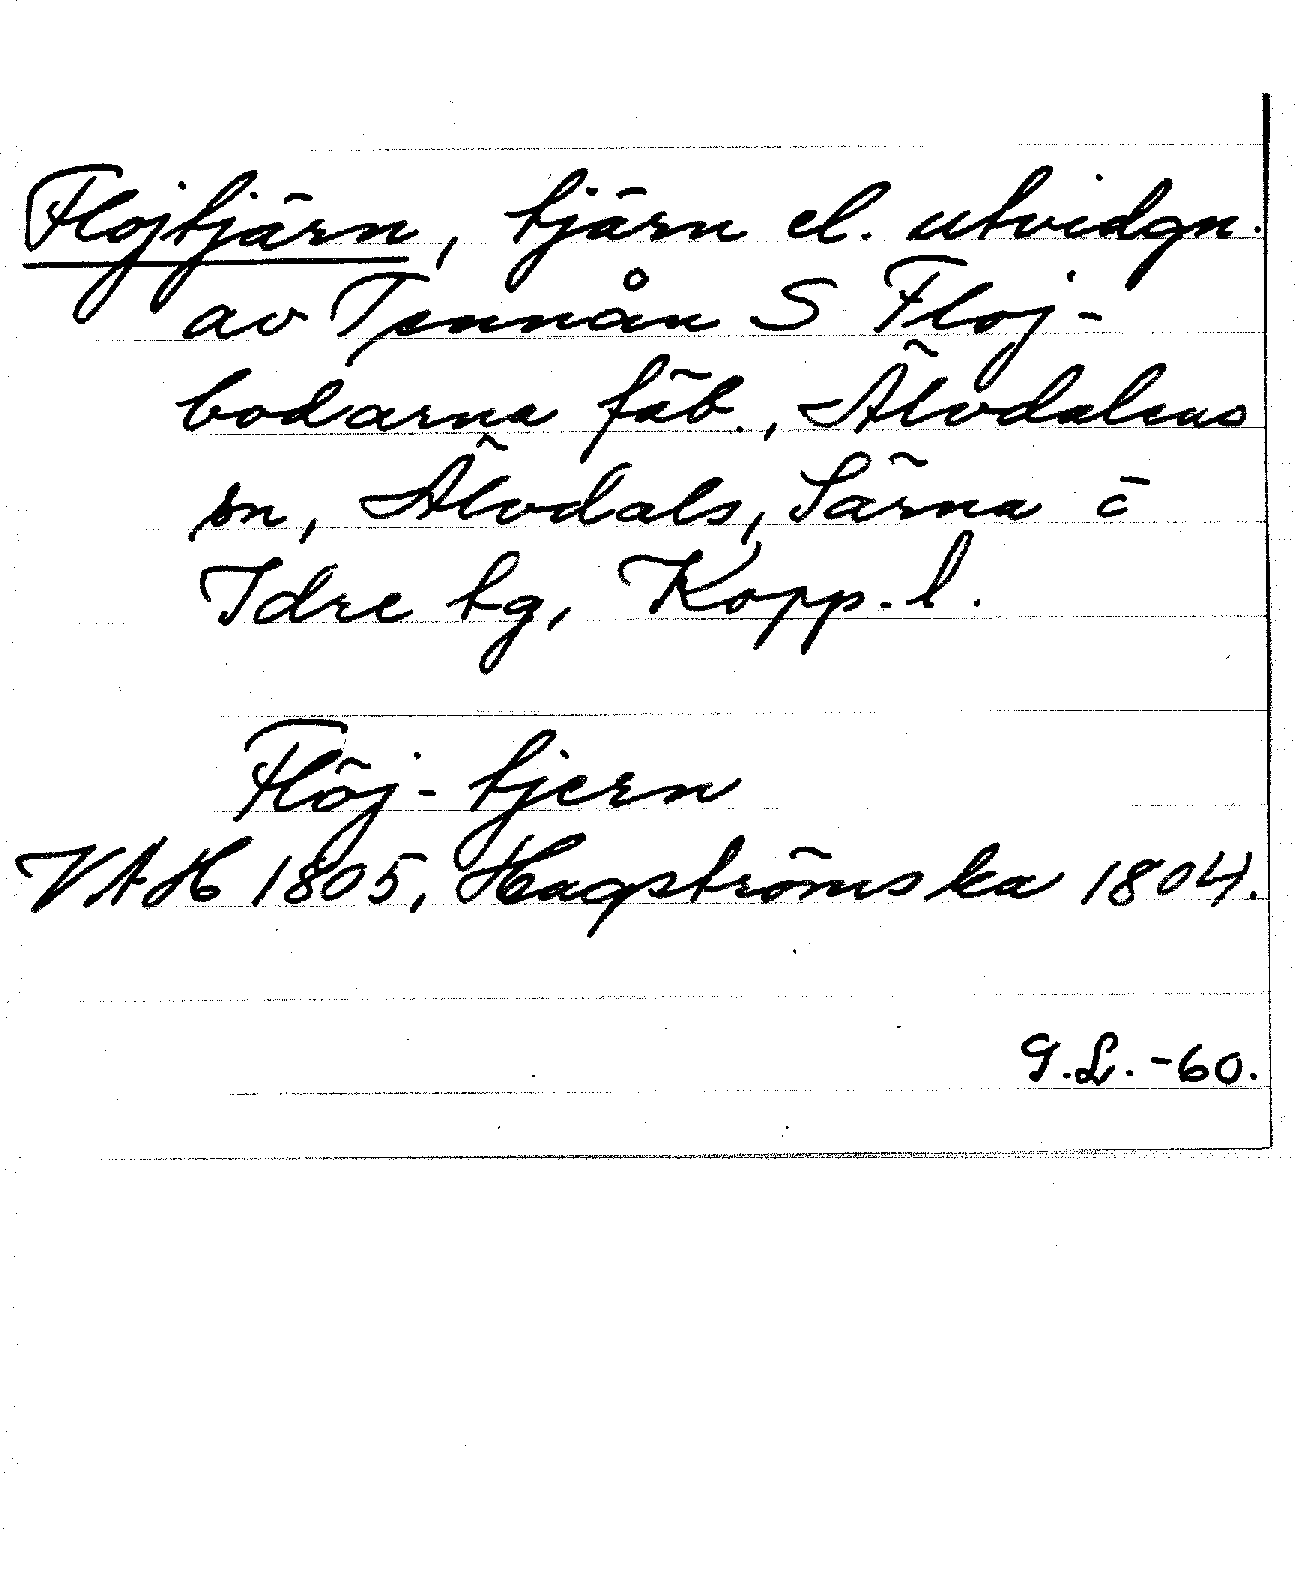 Flojtjärn, tjärn el. utvidgn.
av Tennån S Floj-
bodarna fäb., Älvdalens
sn, Älvdals, Särna o
Idre tg, Kopp. l.
Flöj-tjern
VAH 1805, Hagströmska 1804.
G.L. -60.